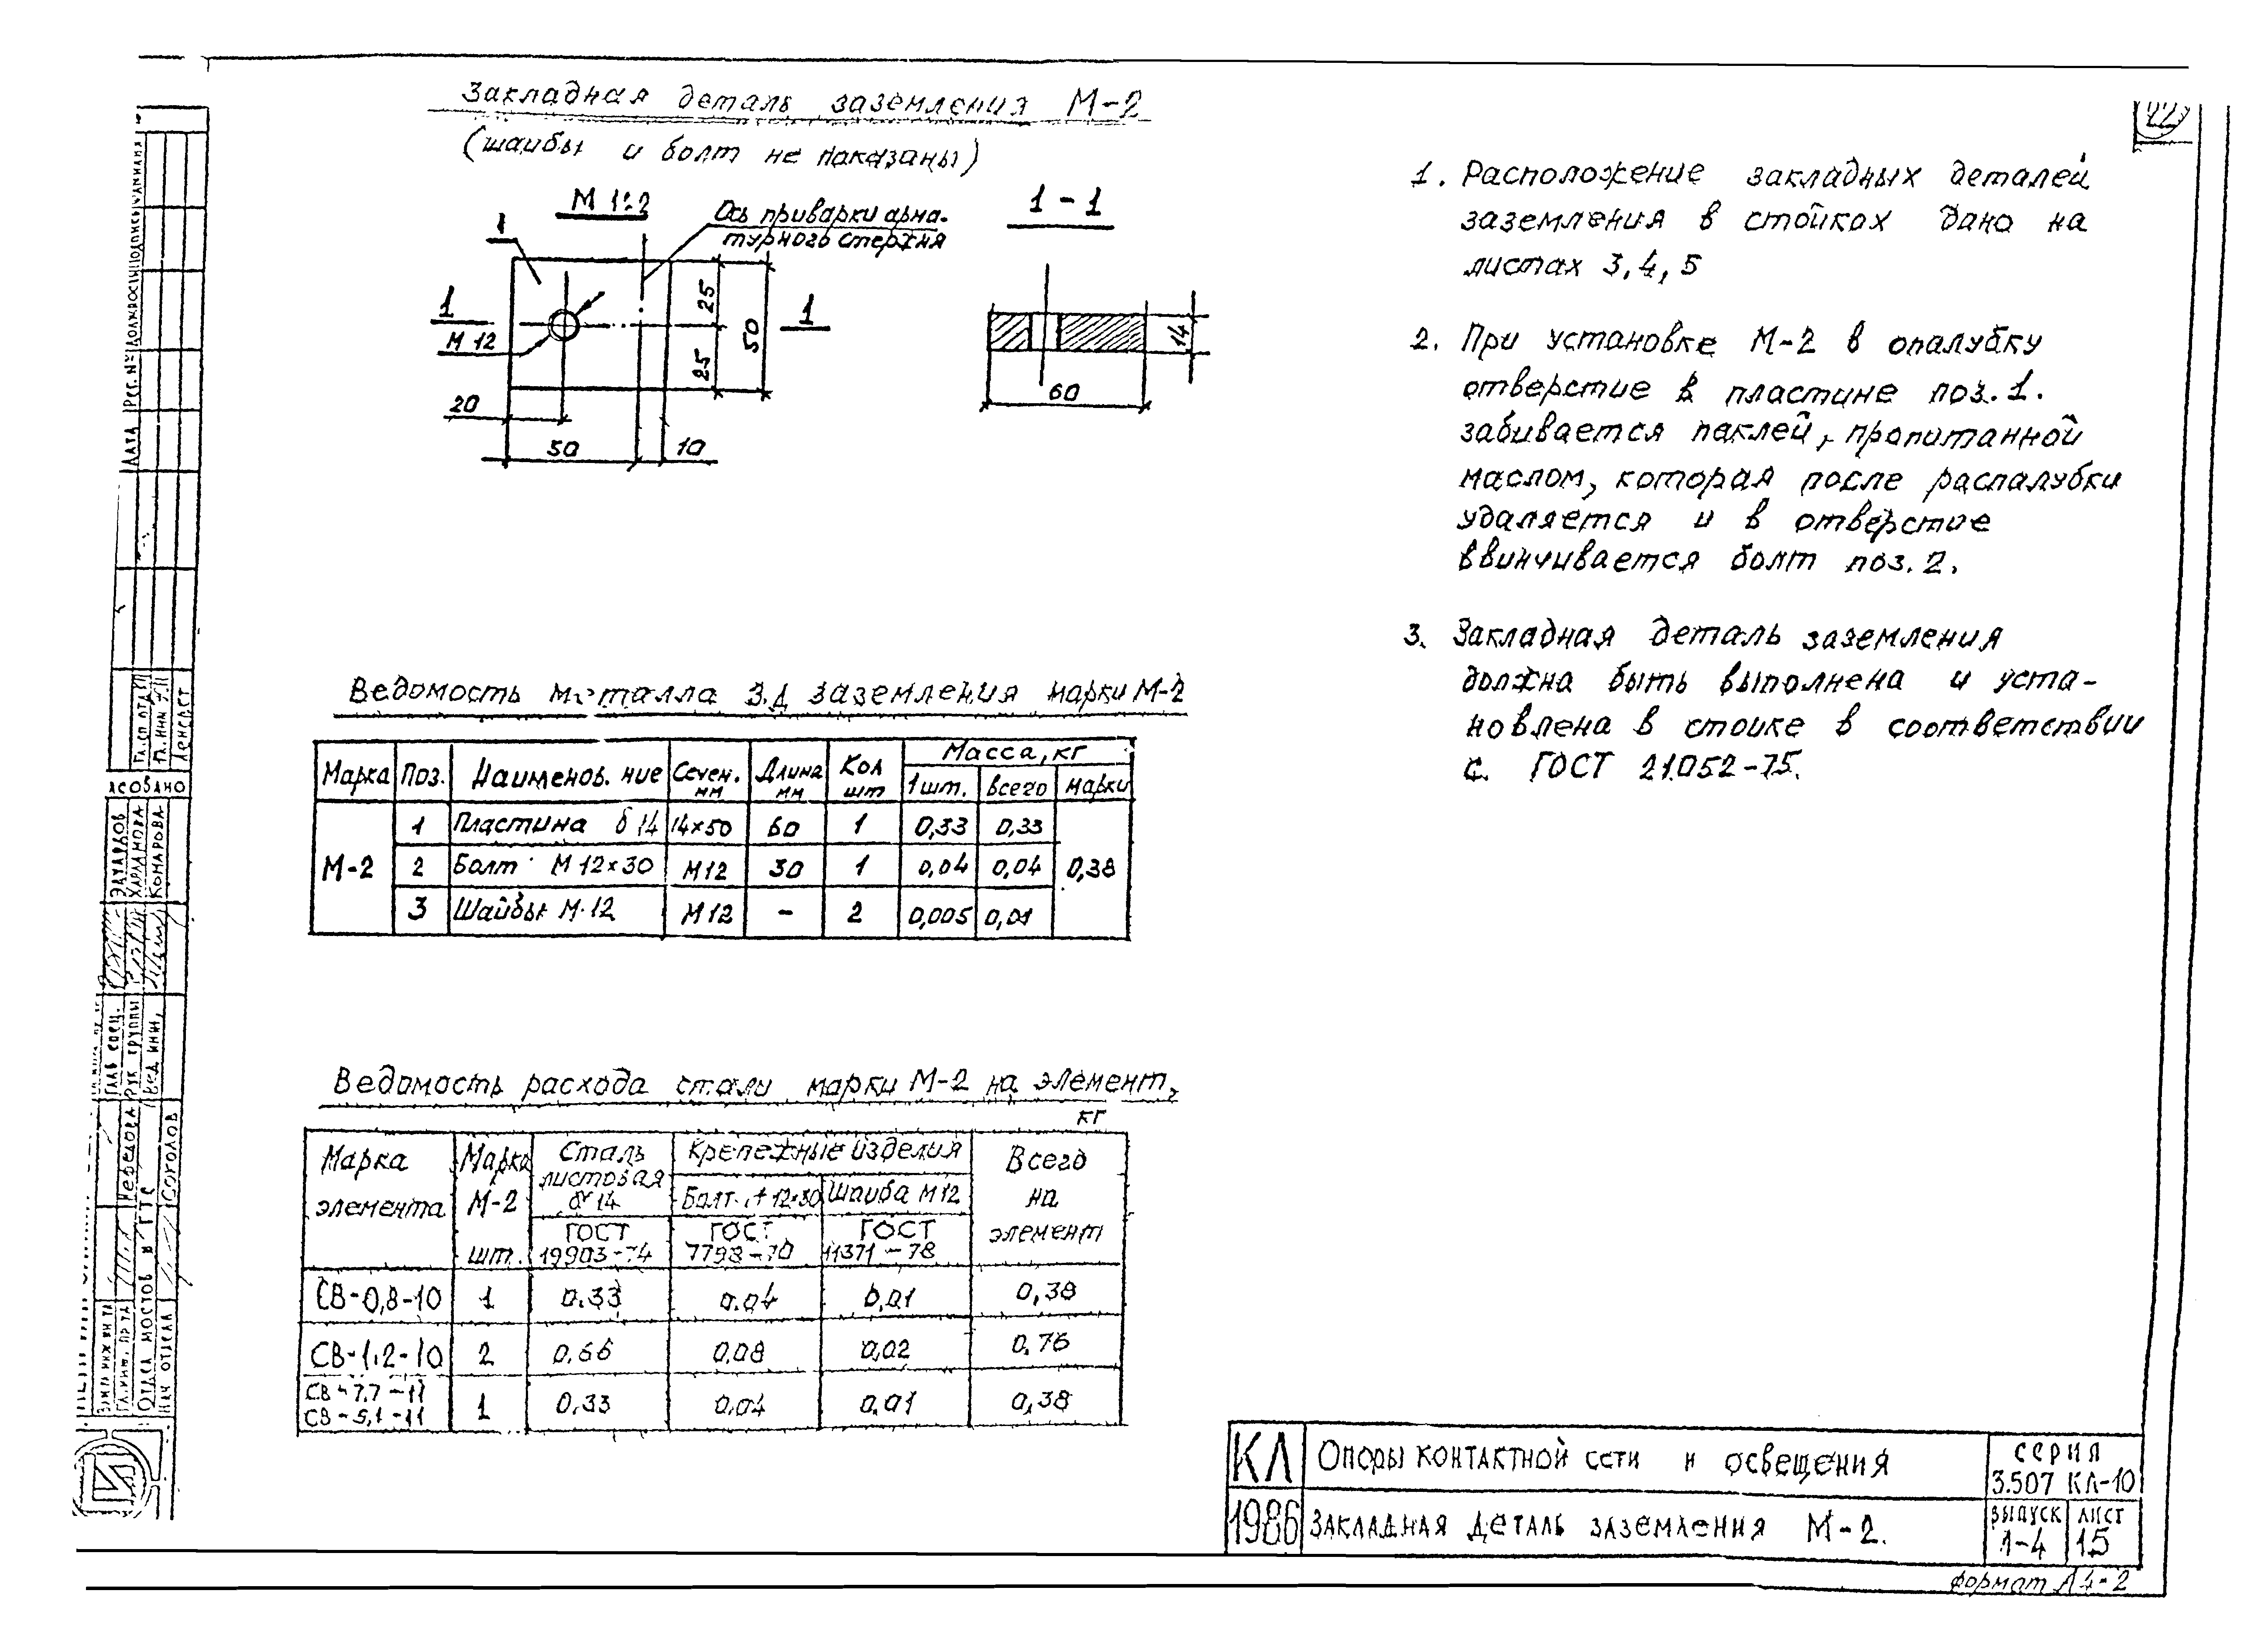 Закладная деталь заземления М-2
(шайбы и болт не показаны)
М 1:2
Ось приварки арма-
турного стержня
1
1 1
М 12
25
25
50
20
50 10
1 - 1
14
60
22
1. Расположение закладных деталей
заземления в стойках дано на
листах 3, 4, 5
2. При установке М-2 в опалубку
отверстие в пластине поз. 1.
забивается паклей, пропитанной
маслом, которая после распалубки
удаляется и в отверстие
ввинчивается болт поз. 2.
3. Закладная деталь заземления
должна быть выполнена и уста-
новлена в стойке в соответствии
с ГОСТ 21.052-75.
Ведомость металла З.Д заземления марки М-2
Марка Поз. Наименов. ние Сечен. мм Длина мм Кол шт Масса, кг
1 шт. всего марки
М-2 1 Пластина δ 14 14×50 60 1 0,33 0,33 0,38
2 Болт М 12×30 М12 30 1 0,04 0,04
3 Шайбы М-12 М12 - 2 0,005 0,01
Ведомость расхода стали марки М-2 на элемент,
кг
Марка элемента Марка М-2 шт. Сталь листовая δ 14 Крепежные изделия Всего на элемент
Болт М 12×30 Шайба М12
ГОСТ 19903-74 ГОСТ 7798-70 ГОСТ 11371-78
СВ-0,8-10 1 0.33 0.04 0,01 0,38
СВ-1.2-10 2 0.66 0,08 0,02 0.76
СВ-7,7-11
СВ-5,1-11 1 0,33 0,04 0,01 0,38
КЛ Опоры контактной сети и освещения серия
3.507 КЛ-10
1986 Закладная деталь заземления М-2. выпуск лист
1-4 15
формат А4-2
дата Рег. № должность подпись фамилия
Ленсвет
Эдуардов
Харламова
Комарова
Рук группы
Вед. инж.
Нередова
Соколов
Отдел мостов и ГТС
Нач отдела